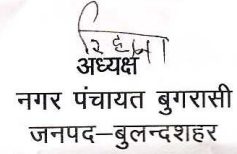 अध्यक्ष
नगर पंचायत बुगरासी
जनपद–बुलन्दशहर